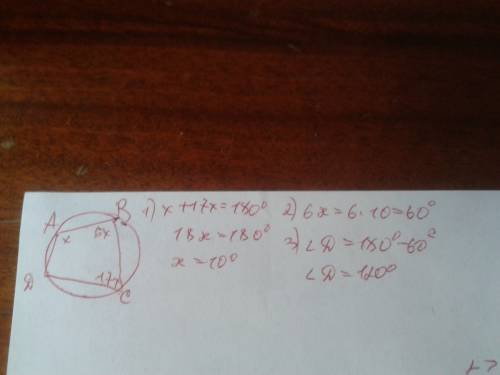 A
B
x
6x
17x
D
C
1) x+17x=180°
18x=180°
x=10°
2) 6x=6·10=60°
3) ∠D=180°-60°
∠D=120°